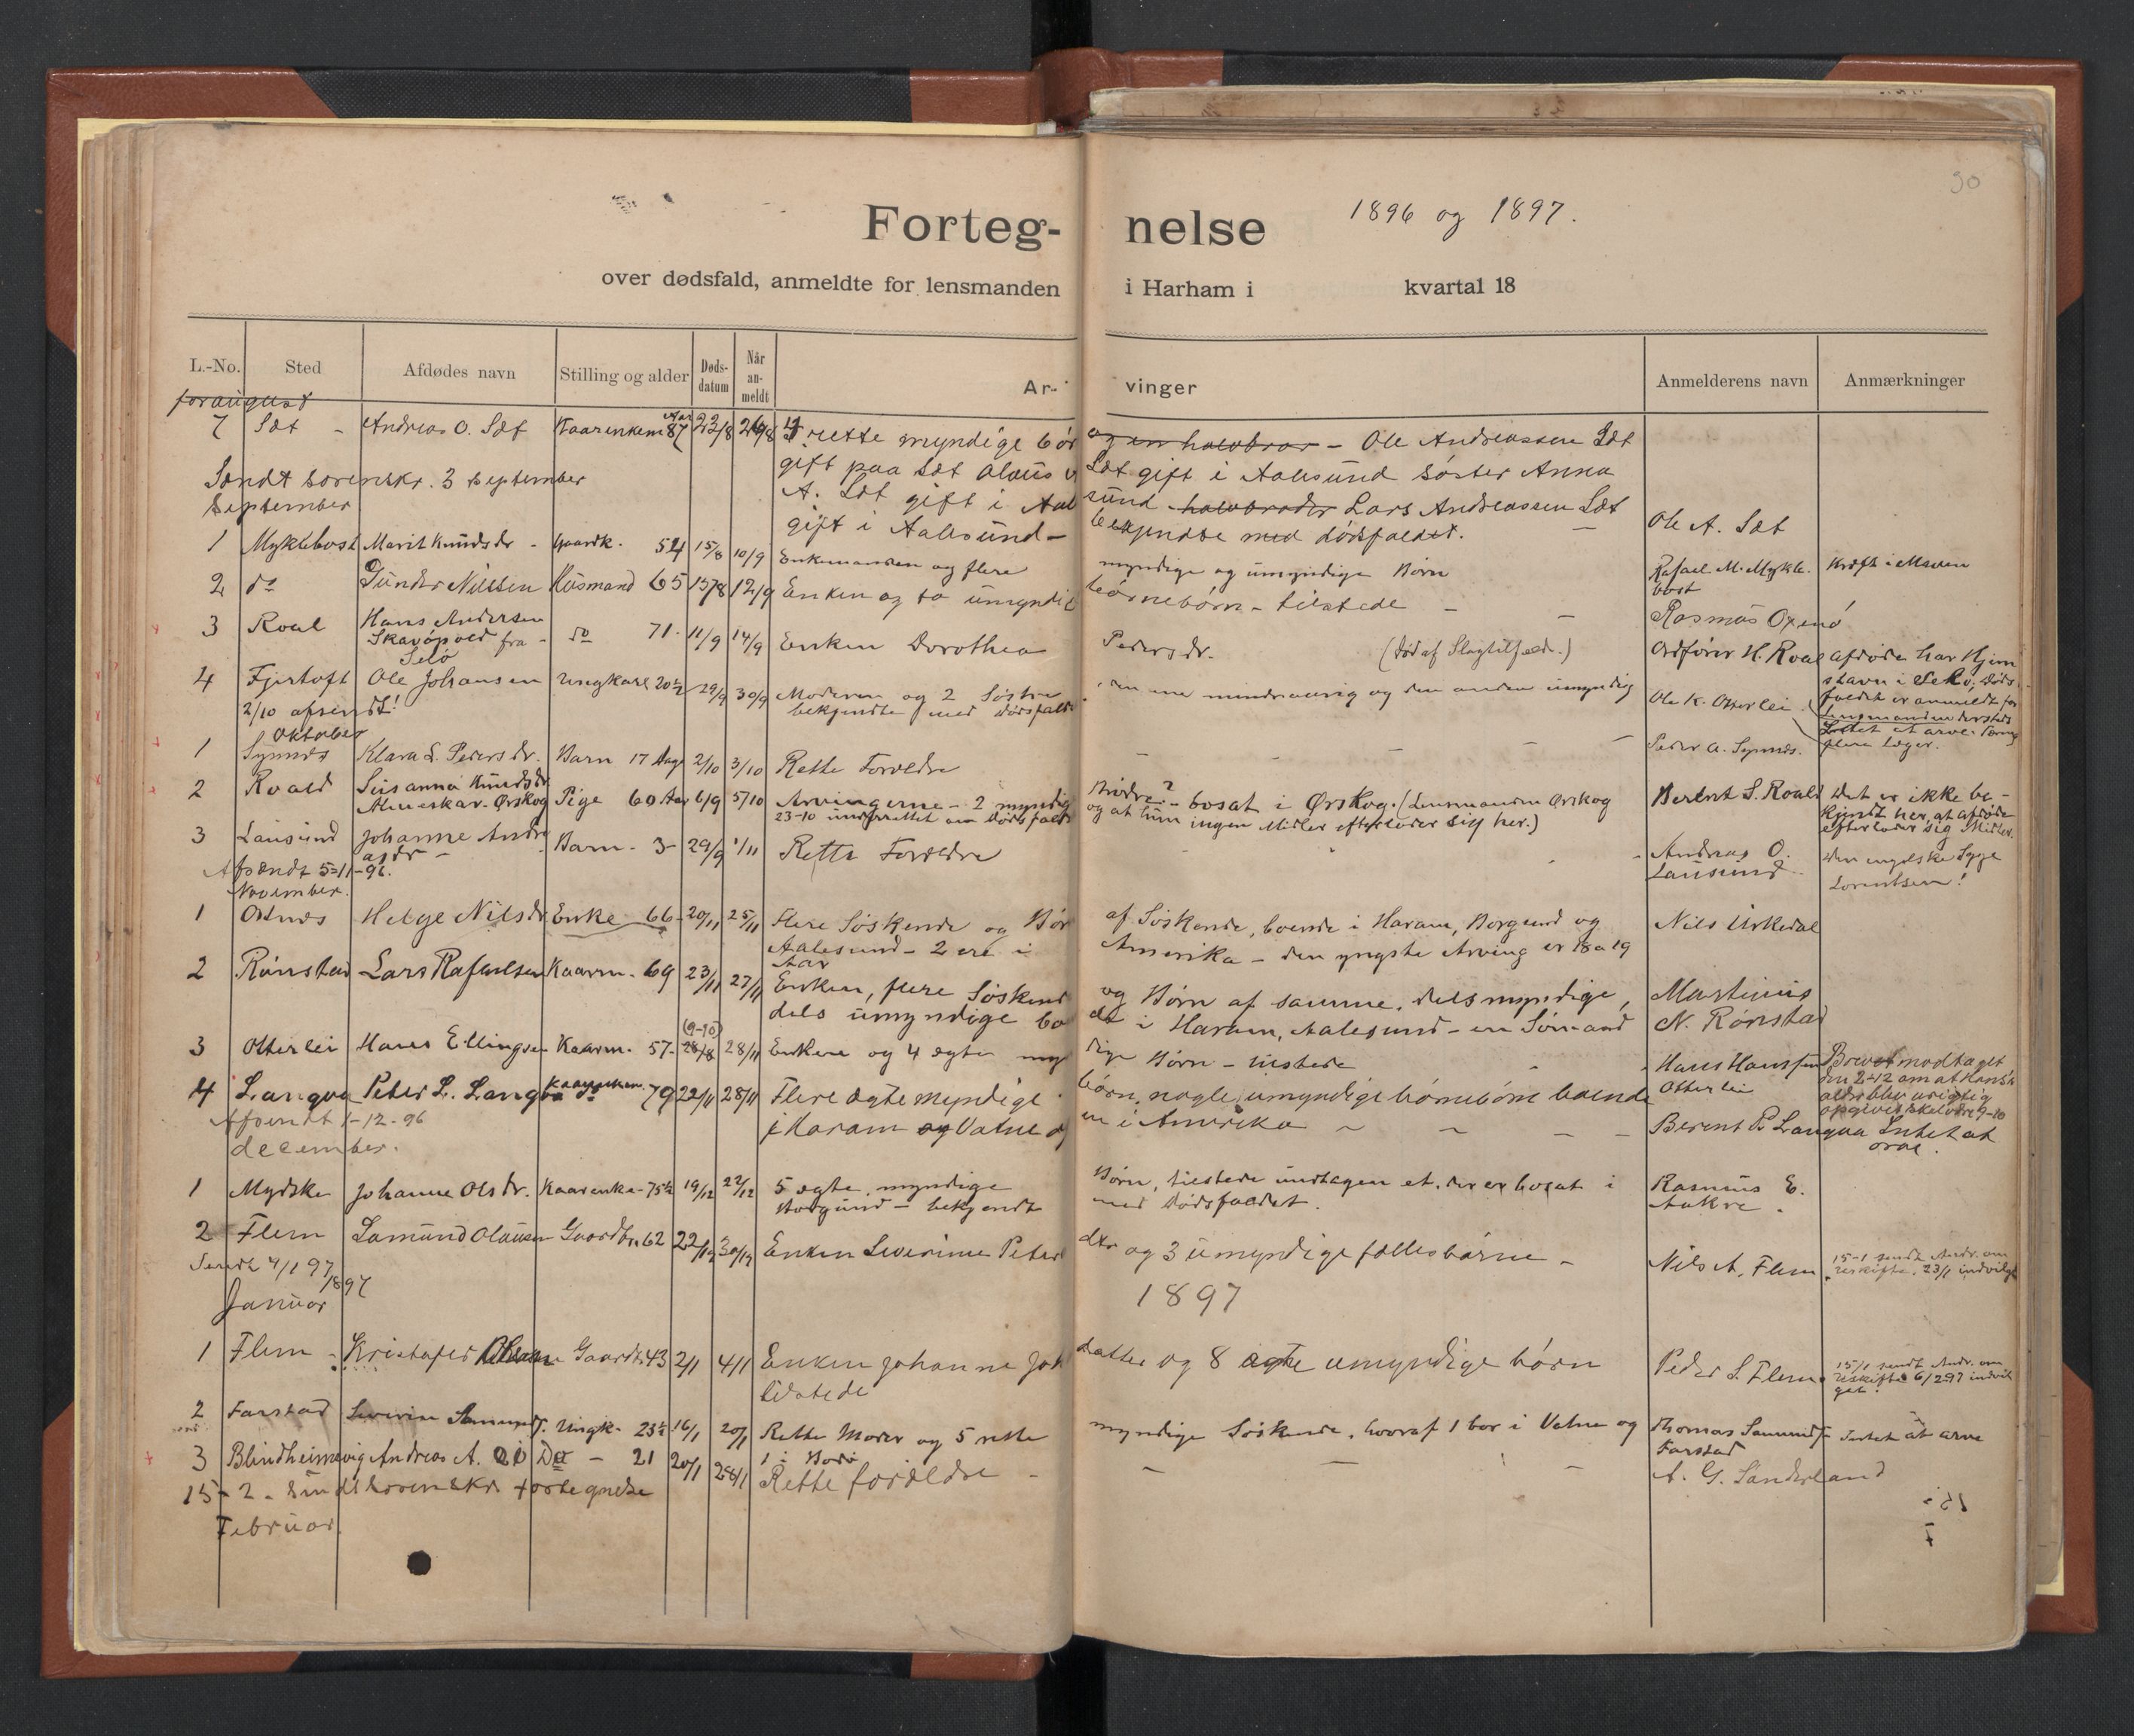 30
Forteg-nelse 1896 og 1897.
over dødsfald, anmeldte for lensmanden i Harham i kvartal 18
L.-No. Sted Afdødes navn Stilling og alder Døds-datum Når an-meldt Ar-vinger Anmelderens navn Anmærkninger
for august
7 Sæt - Andreas O. Sæt Kaarenkem 87 Aar 22/8 26/8 4 rette myndige bör og en halvbror - Ole Andreassen Sæt
gift paa Sæt Olaus Sæt gift i Aalesund söster Anna
Sendt sorenskr. 3 september A. Sæt gift i Aalesund halvbroder Lars Andreassen Sæt
September gift i Aalesund - bekjendte med dödsfaldet. - Ole A. Sæt
1 Myklebost Marit Knudsdr - Gaardk. 54 15/8 10/9 Enkemanden og flere myndige og umyndige Börn Rafael M. Mykle-bost Kræft i Maven
2 do Gunder Nilssen Husmand 65 15/8 12/9 Enken og to umyndi börnebörn - tilstede - - Rasmus Oxenö
3 Roal Hans Andersen Skavöpold fra - Selö do 71 - 11/9 14/9 Enken Dorothea Pedersdr. (Död af Slagtilfælde.) Ordförer H. Roal
afdöde har Hjem
stavn i Selö, Döds
faldet er anmeldt for
Lensmanden dersteds
Intet at arve.
flere Læger.
4 Fjørtoft Ole Johansen Ungkarl 20½ 29/9 30/9 Moderen og 2 Söstre, den ene mindreaarig og den anden umyndig Ole K. Otterlei
2/10 afsendt! bekjendte med Dödsfald
Oktober
1 Synnes Klara L. Pedersdr. Barn 17 Dage 2/10 3/10 Rette Foreldre - - - - Peder A. Synnes.
2 Roald Susanna Knudsdr Almeskar - Ørskog Pige 60 Aar 6/9 5/10 Arvingerne - 2 myndig Brödre? - bosat i Ørskog. / Lensmanden Ørskog Berent S. Roald
23-10 underrettet om Dödsfald og at hun ingen Midler efterlader sig her.)
Det er ikke be-
kjendt her, at afdöde
efterlader sig Midler.
3 Lausund Johanne Andre asdr - Barn - 3 - 29/9 1/11 Rette Foreldre Andreas O. Lausund
Den engelske Syge
Lorentsen!
Afsendt 5-11-96.
November.
1 Ostnes Helge Nilsdr Enke 66 - 20/11 25/11 Flere Söskende og Bör af Söskende, boende i Haram, Borgund og Nils Urkedal
Aalesund - 2 ere i Amerika - den yngste Arving er 18 a 19
Aar
2 Rönstad Lars Rafaelsen Kaarm. 69 23/11 27/11 Enken, flere Söskend og Börn af samme, dels myndige, Martinus N. Rönstad
dels umyndige bo de i Haram, Aalesund - en Sömand
3 Otterlei Hans Ellingsen Kaarm. 57 - (9-10) 28/8 28/11 Enken og 4 ægte myn dige Börn - tilstede Hans Hanssen Otterlei
Brevet modtaget
den 2-12 om at Hans's
alder blev urigtig
opgivet skelvdre 9-10
4 Langva Peter L. Langva 79 22/11 28/11 Flere ægte myndige börn, nogle umyndige börnebörn boende
i Haram og Vatne og en i Amerika - - - - Berent P. Langva Intet at arve.
Afsendt 1-12-96
december.
1 Mydske Johanne Olsdr. Kaarenke - 75½ 19/12 22/12 5 ægte myndige Börn, tilstede undtagen et, der er bosat i Rasmus E. Aakre.
Borgund - bekjendt med Dödsfaldet.
2 Flem Samund Olausen Gaardbr. 62 22/12 30/12 Enken Severine Peters dtr og 3 umyndige fellesbörne - Nils A. Flem
15-1 sendt Andr. om
uskifte. 23/1 indvilg
Sendt 4/1 97
Januar 1897
1897
1 Flem - Kristofer Gaardb. 43 2/1 4/1 Enken Johanne Joh datter og 8 ægte umyndige börn Peder S. Flem
tilstede
15/1 sendt Andr. om
uskifte 6/2 97 indvil
get.
2 Farstad Severin Samunds. Ungk. 23½ 16/1 20/1 Rette Moder og 5 rette myndige Söskende, hvoraf 1 bor i Vatne og Thomas Samunds Farstad Intet at arve
1 i Bodö
3 Blindheimsvig Andreas A. Do - 21 20/1 28/1 Rette foreldre - - - - A. G. Sanderland
15-2 - sendt sorenskr fortegnelse
Februar.